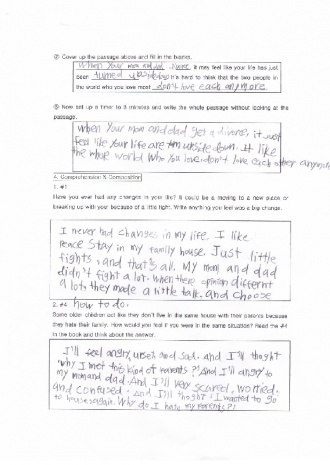 ② Cover up the passage above and fill in the blanks.
When your mom and dad divorce, it may feel like your life has just
been turned upside. It's hard to think that the two people in
the world who you love most don't love each anymore.
③ Now set up a timer to 8 minutes and write the whole passage without looking at the
passage.
When your mom and dad get a divorce, it just
feel like your life are turn upside down. It like
the whole world who you love don't love each other anymore
4. Comprehension & Composition
1. #1
Have you ever had any changes in your life? It could be a moving to a new place or
breaking up with your because of a little fight. Write anything you felt was a big change.
I never had changes in my life. I like
peace stay in my family house. Just little
fights, and that's all. My mom and dad
didn't fight a lot. When there opinion differnt
a lot, they made a little talk, and choose
how to do.
2. #4
Some older children act like they don't live in the same house with their parents because
they hate their family. How would you feel if you were in the same situation? Read the #4
in the book and think about the answer.
I'll feel angry, upset and sad. and I'll thoght
'Why I met this kind of parents?' And I'll angry to
my mom and dad. And I'll very scared, worried,
and confused. And I'll thoght 'I wanted to go
to house again. Why do I hate my parents?'!